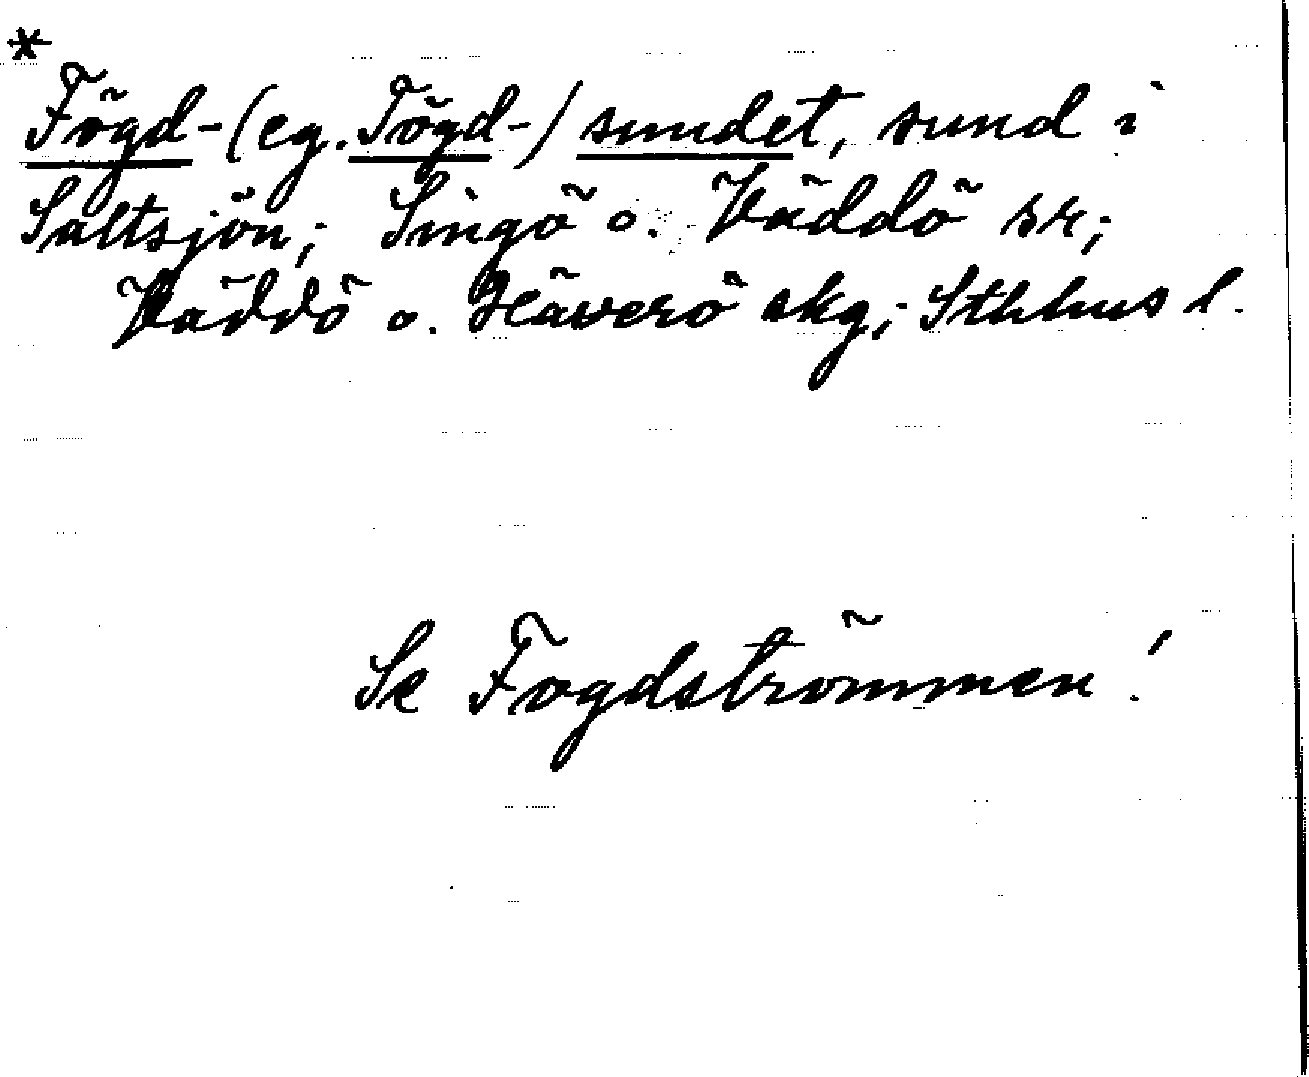 *
Fögd-(eg. Tögd-) sundet, sund i
Saltsjön; Singö o. Väddö sr;
Väddö o. Häverö skg; Sthlms l.
Se Fogdströmmen!